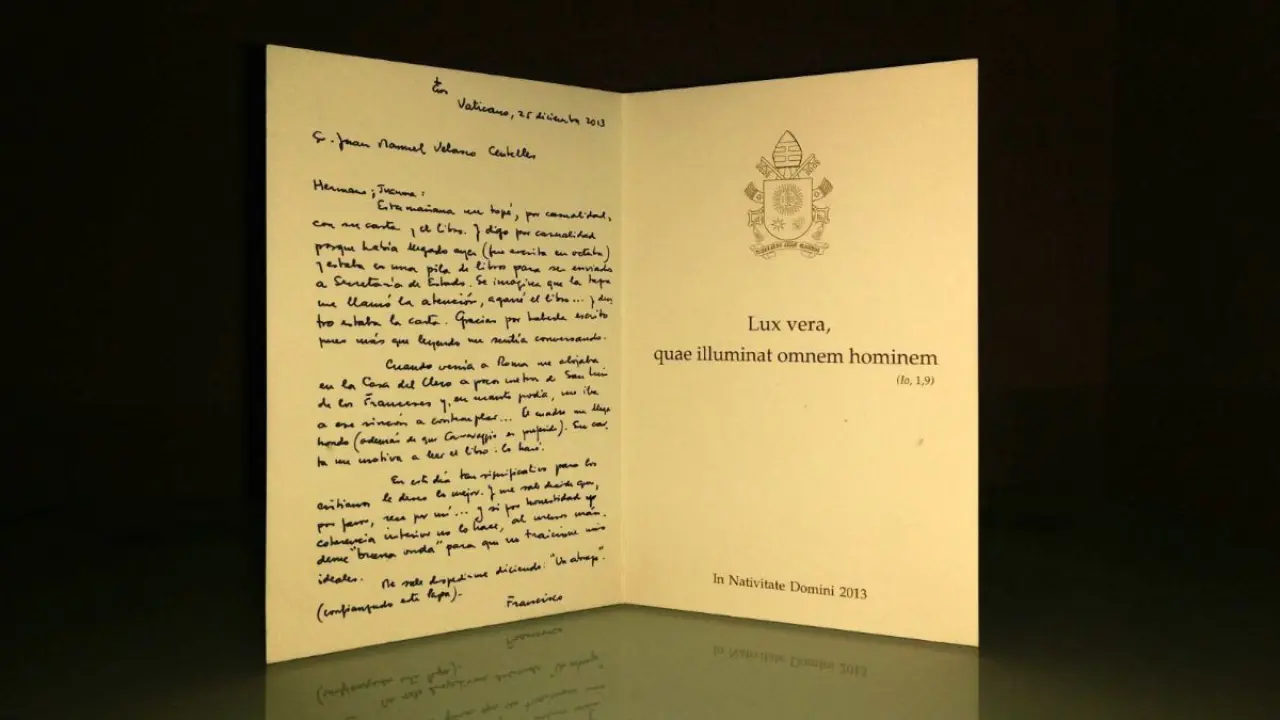 Vaticano, 25 diciembre 2013
Sr. Juan Manuel Velasco Centelles
Hermano; Juanma:
Esta mañana me topé, por casualidad,
con su carta y el libro. Y digo por casualidad
porque había llegado ayer (fue escrita en octubre)
y estaba en una pila de libros para ser enviados
a Secretaría de Estado. Se imagina que la tapa
me llamó la atención, agarré el libro... y den
tro estaba la carta. Gracias por haberla escrito
pues más que leyendo me sentía conversando.
Cuando venía a Roma me alojaba
en la Casa del Clero a pocos metros de San Luis
de los Franceses y, en cuanto podía, me iba
a ese rincón a contemplar... El cuadro me llega
hondo (además de que Caravaggio es preferido). Su car
ta me motiva a leer el libro: lo haré.
En este día tan significativo para los
cristianos le deseo lo mejor. Y me sale decirle que,
por favor, rece por mí... y si por honestidad y
coherencia interior no lo hace, al menos mán
deme "buena onda" para que no traicione mis
ideales. Me sale despedirme diciendo: "Un abrazo".
(confianzudo este Papa).
Francisco
Lux vera,
quae illuminat omnem hominem
(Io, 1,9)
In Nativitate Domini 2013